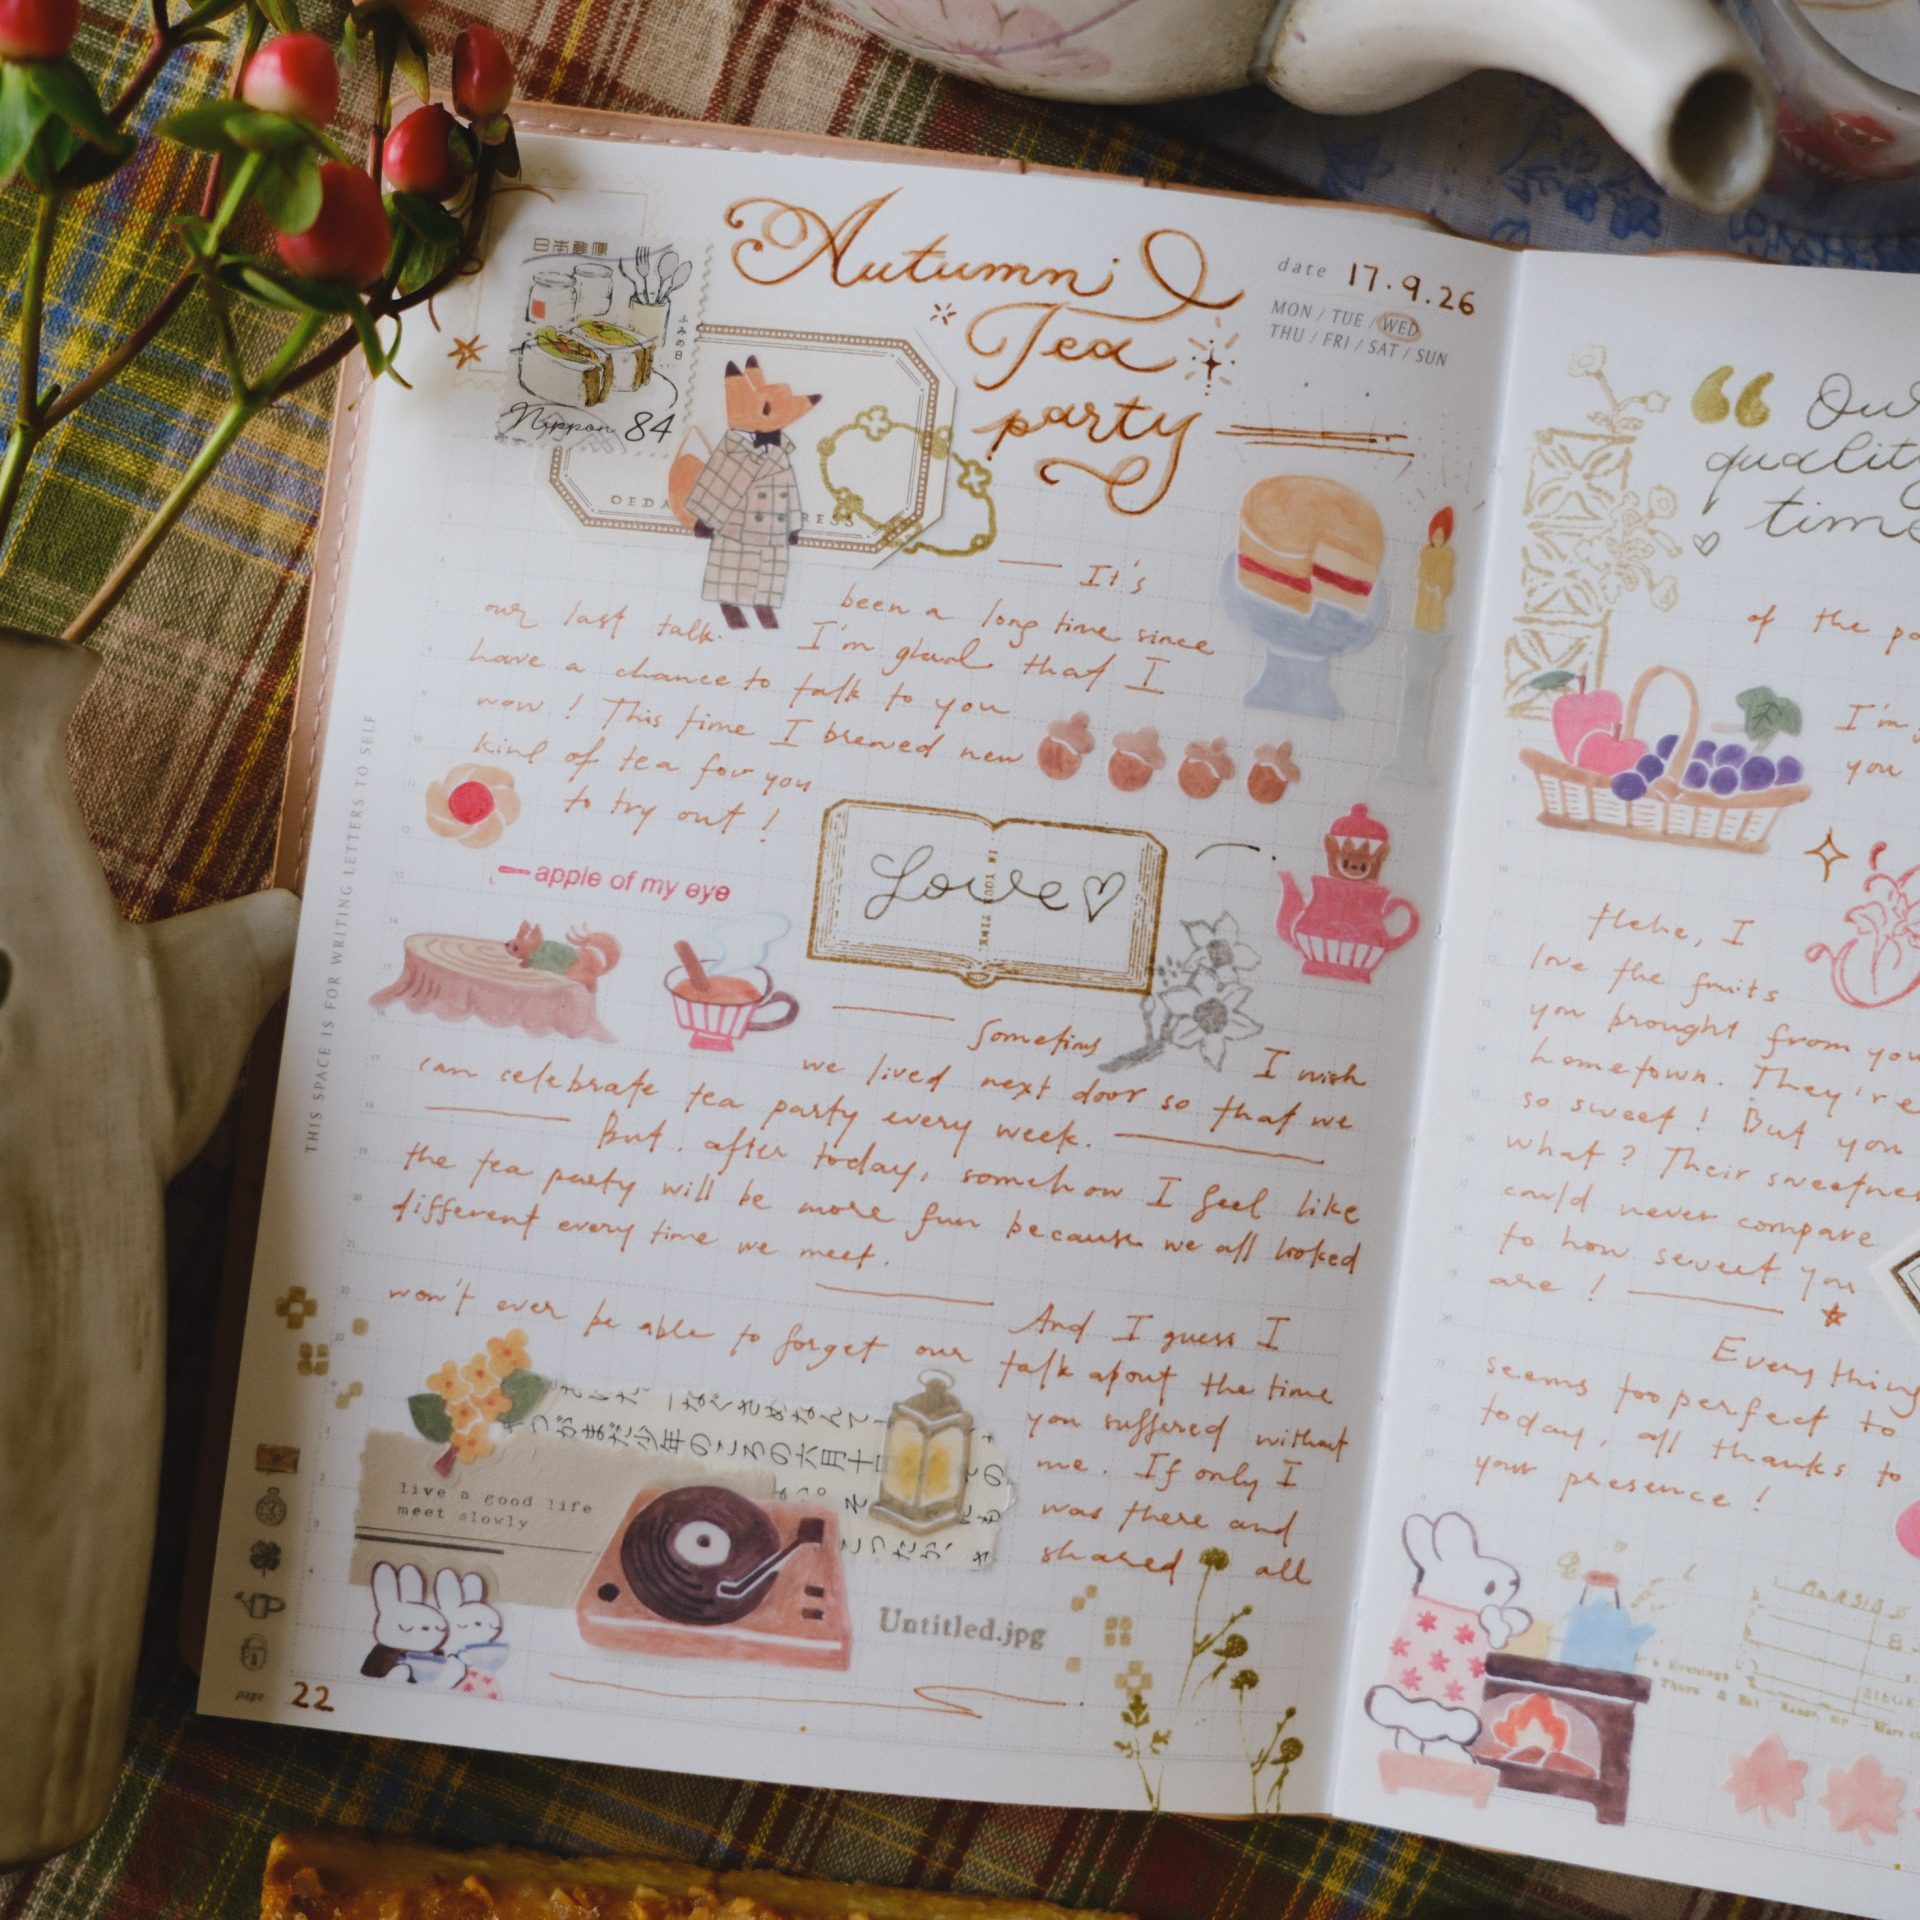 日本郵便
ふみの日
Nippon 84
Autumn
Tea
party
date 17.9.26
MON / TUE / WED
THU / FRI / SAT / SUN
It's
been a long time since
our last talk. I'm glad that I
have a chance to talk to you
now! This time I brewed new
kind of tea for you
to try out!
apple of my eye
Love
Sometimes I wish
we lived next door so that we
can celebrate tea party every week.
But, after today, somehow I feel like
the tea party will be more fun because we all looked
different every time we meet.
And I guess I
won't ever be able to forget our talk about the time
you suffered without
me. If only I
was there and
shared all
live a good life
meet slowly
Untitled.jpg
THIS SPACE IS FOR WRITING LETTERS TO SELF
page 22
“ Our
quality
time
of the
I'm
you
Hehe, I
love the fruits
you brought from your
hometown. They're
so sweet! But you
what? Their sweetness
could never compare
to how sweet you
are!
Everything
seems too perfect to
today, all thanks to
your presence!